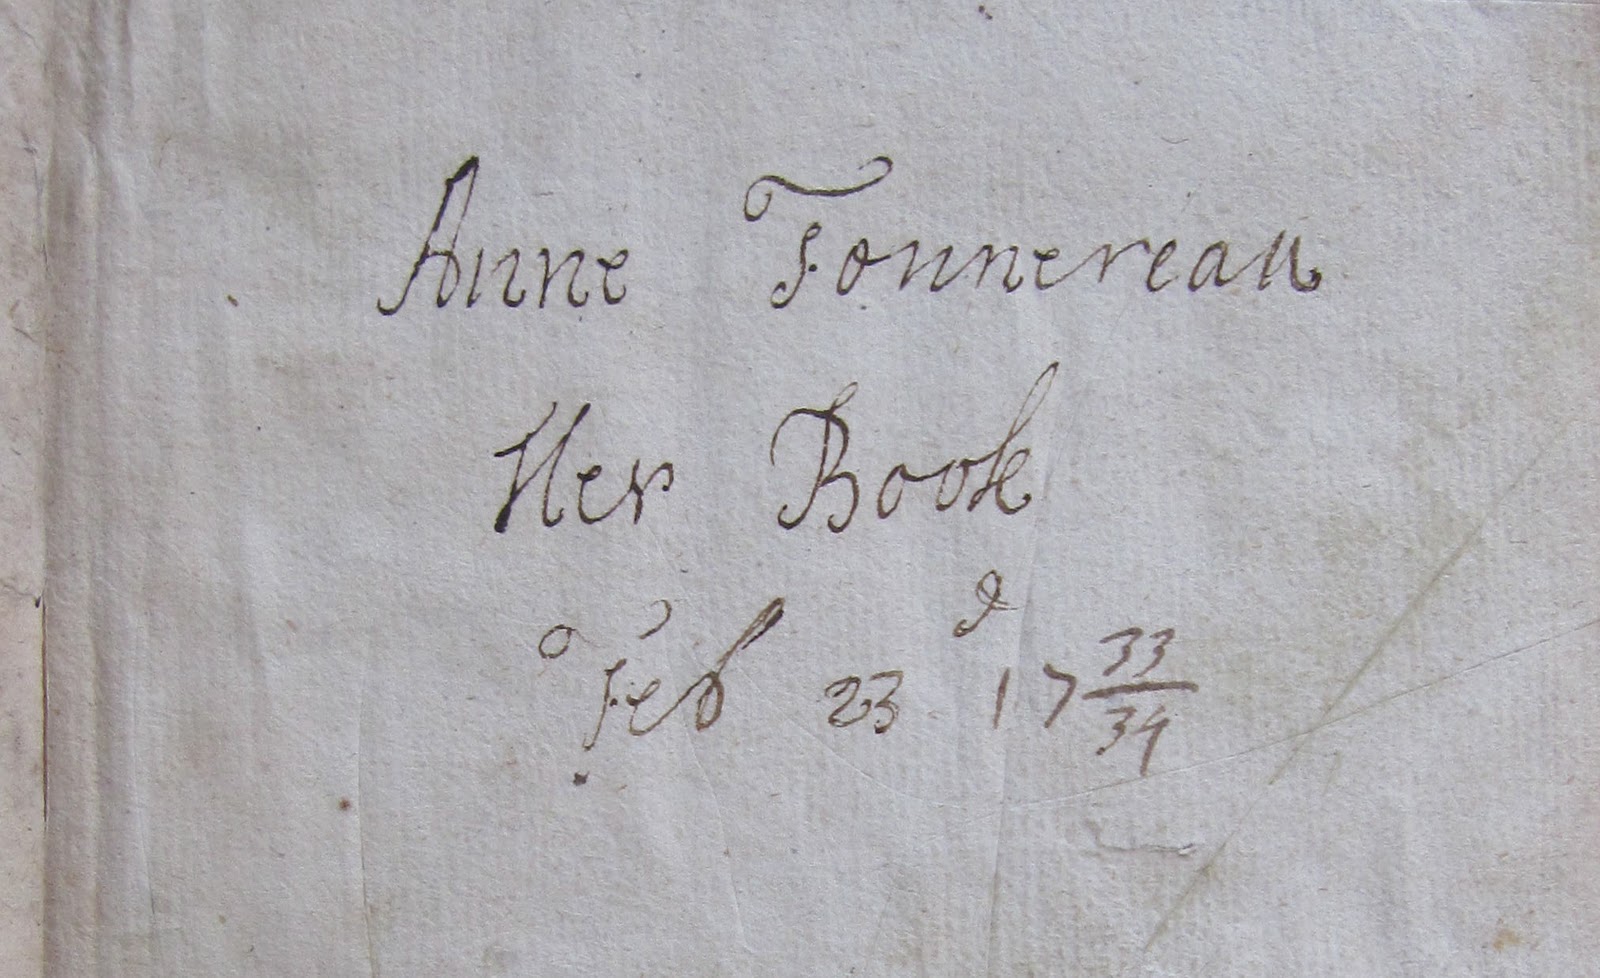 Anne Fonnereau
Her Book
Feb 23d 17 33/34